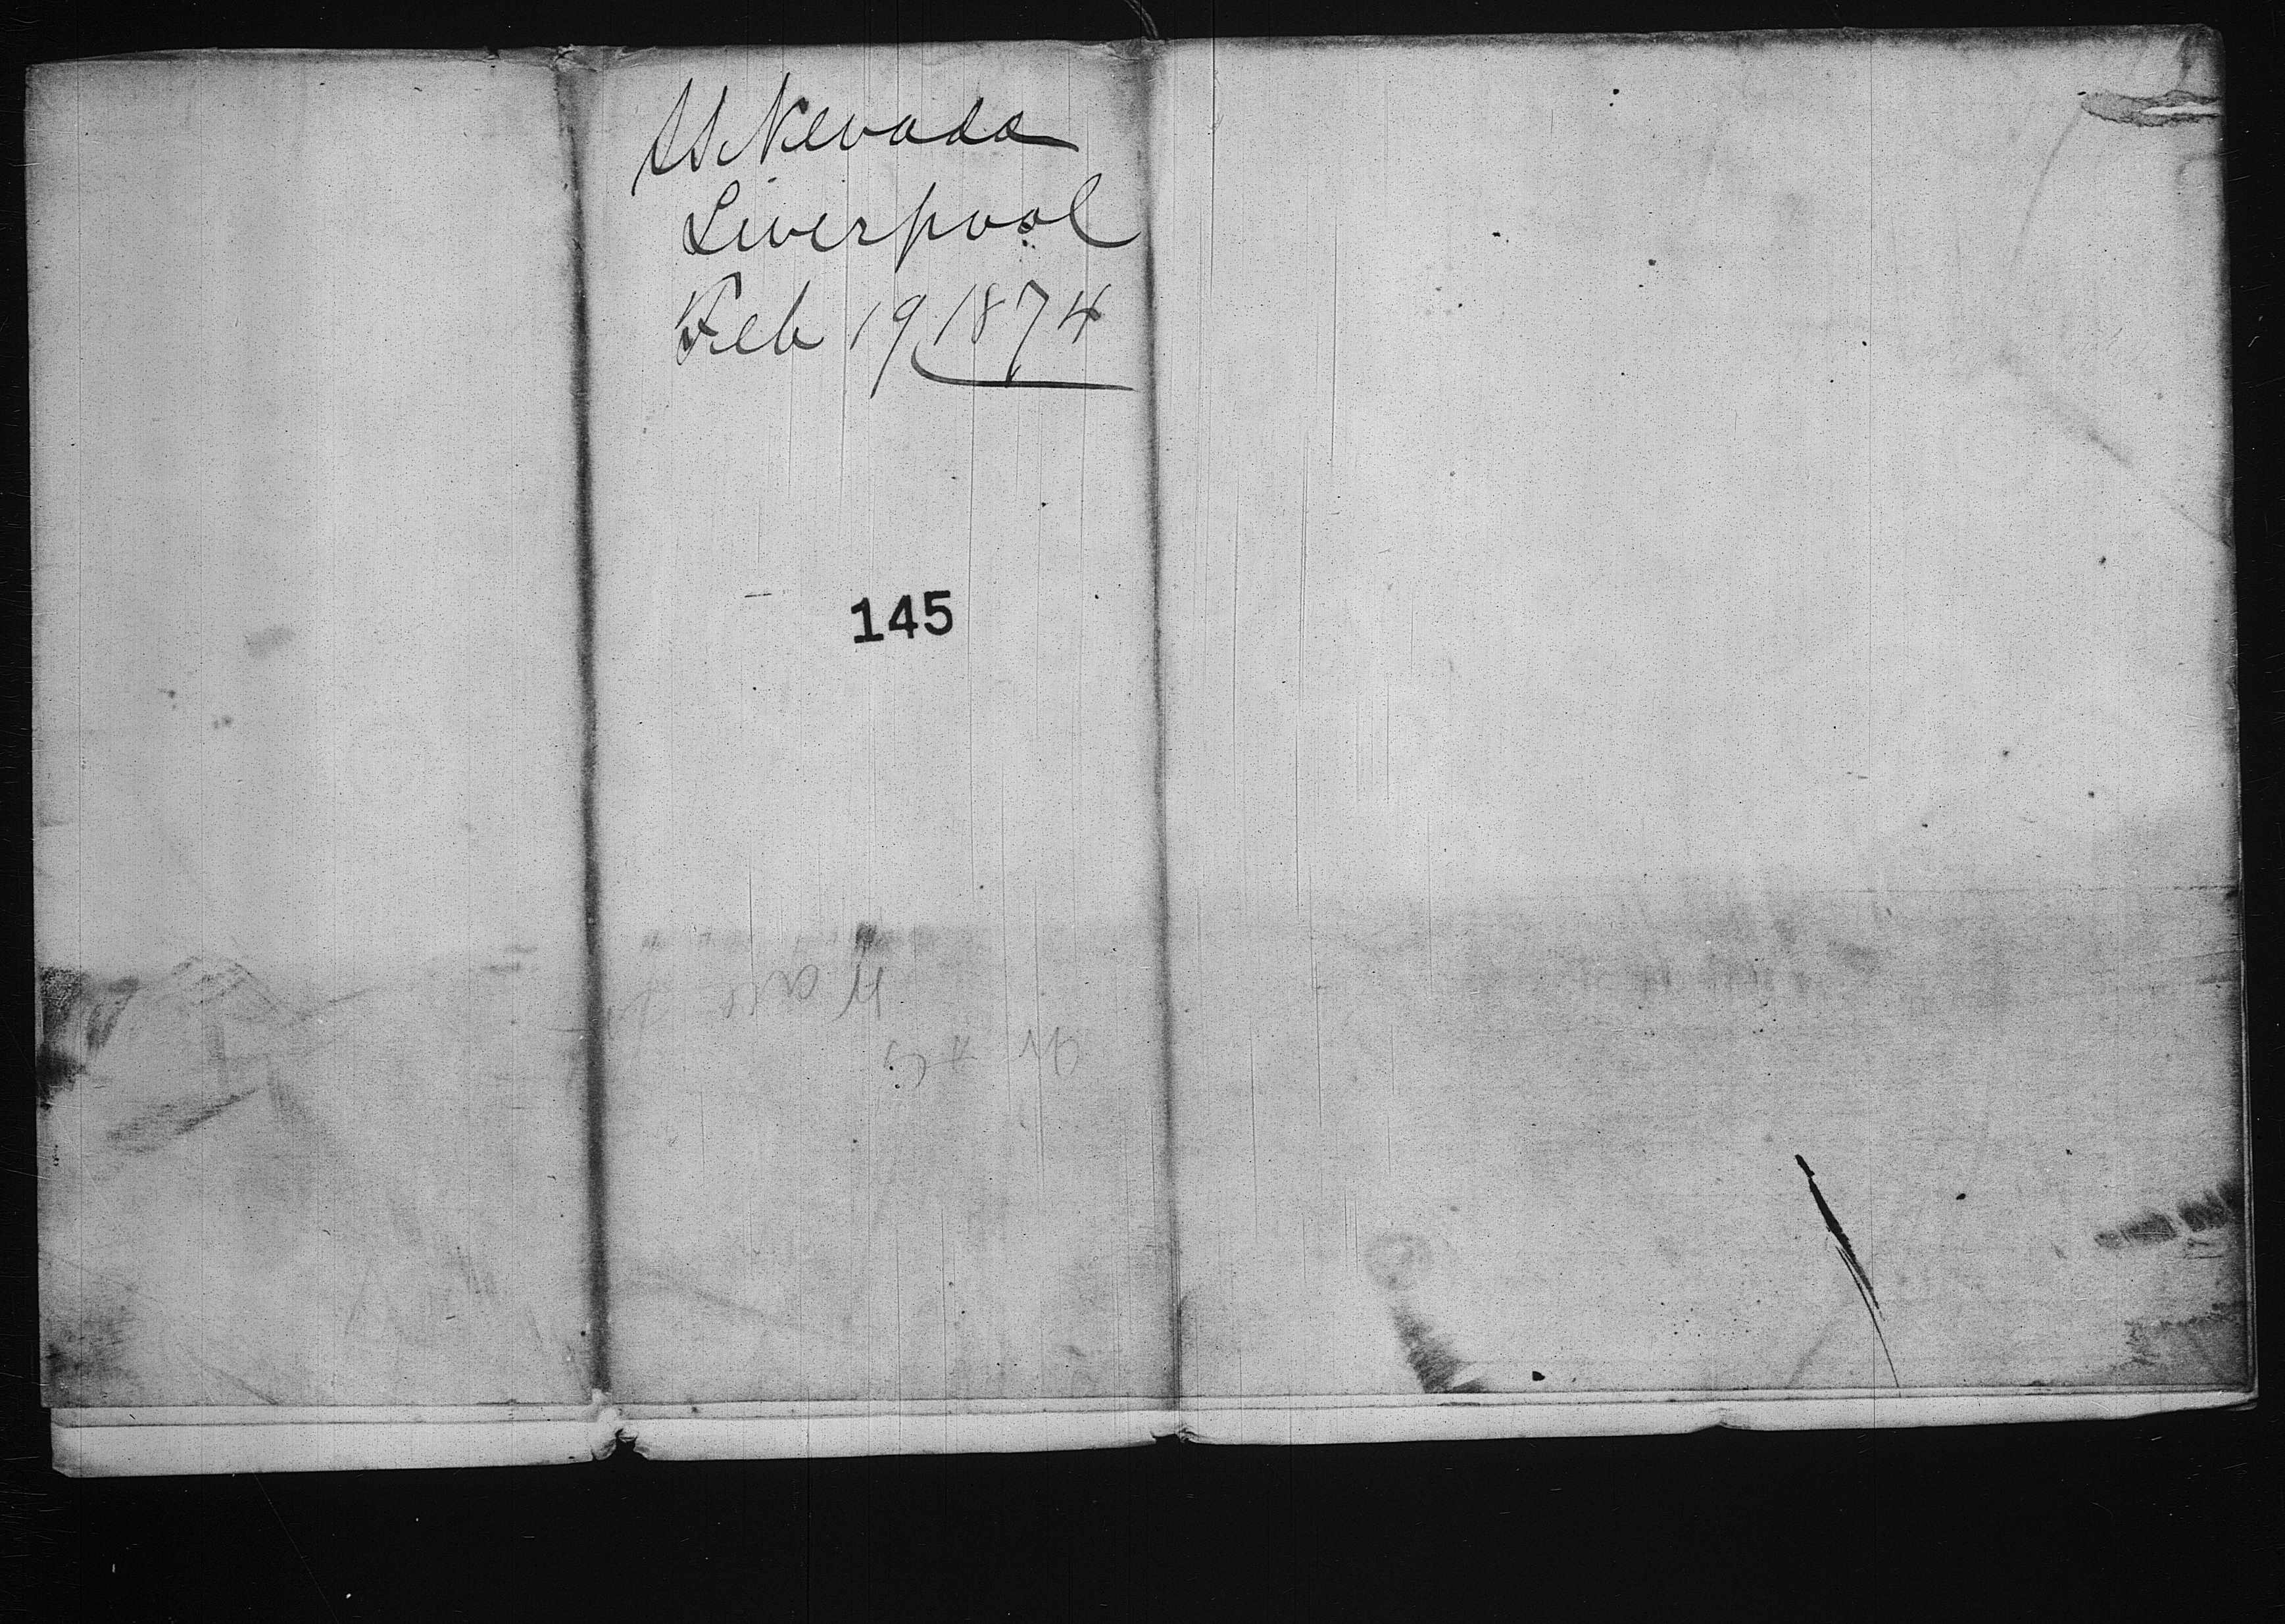 SS Nevada
Liverpool
Feb 19 1874
145